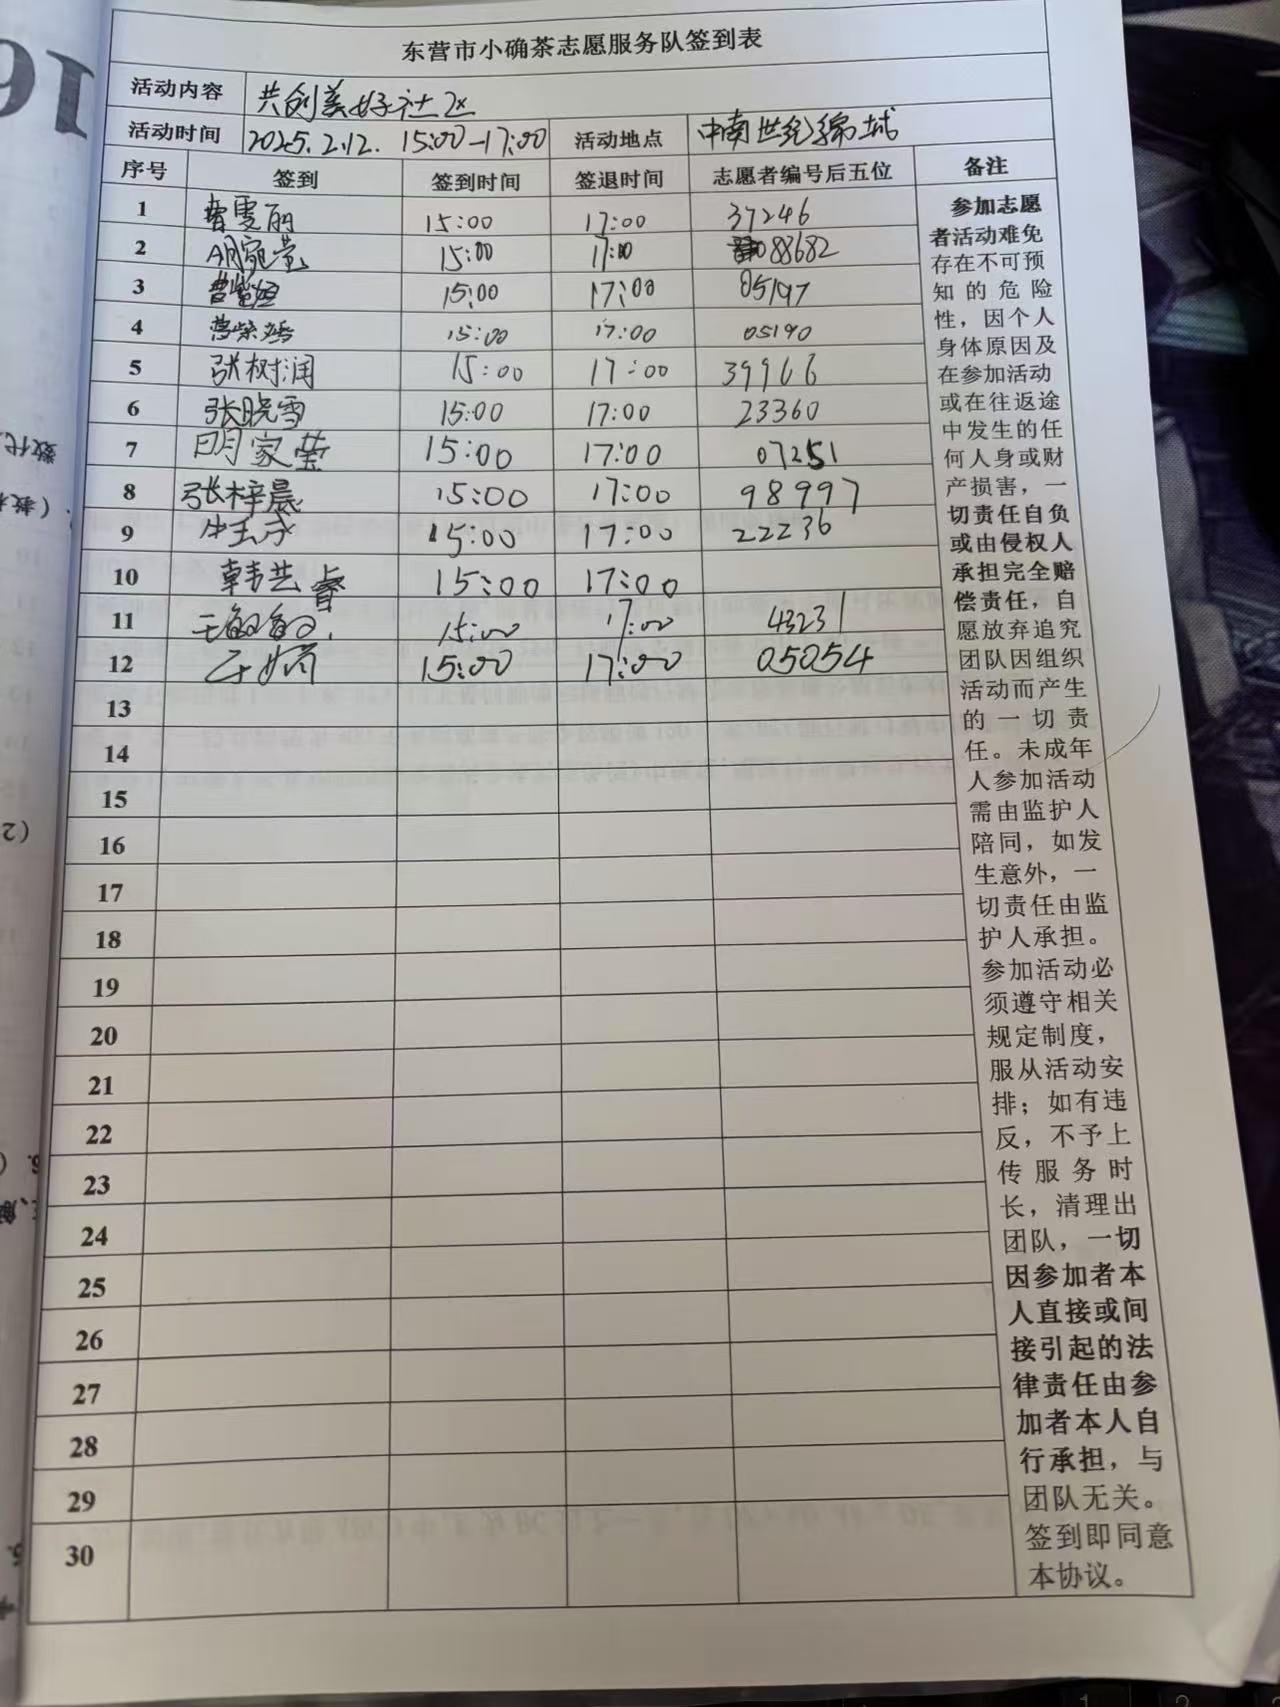 东营市小确茶志愿服务队签到表
活动内容 共创美好社区
活动时间 2025.2.12. 15:00-17:00 活动地点 中南世纪锦城
序号 签到 签到时间 签退时间 志愿者编号后五位 备注
1 15:00 17:00 37246
2 胡宛莹 15:00 17:00 88682
3 15:00 17:00 05197
4 15:00 17:00 05190
5 张树润 15:00 17:00 39966
6 张晓雪 15:00 17:00 23360
7 明家莹 15:00 17:00 07251
8 张梓晨 15:00 17:00 98997
9 15:00 17:00 22236
10 韩艺睿 15:00 17:00
11 15:00 17:00 43231
12 15:00 17:00 05054
13
14
15
16
17
18
19
20
21
22
23
24
25
26
27
28
29
30
参加志愿
者活动难免
存在不可预
知的危险
性，因个人
身体原因及
在参加活动
或在往返途
中发生的任
何人身或财
产损害，一
切责任自负
或由侵权人
承担完全赔
偿责任，自
愿放弃追究
团队因组织
活动而产生
的一切责
任。未成年
人参加活动
需由监护人
陪同，如发
生意外，一
切责任由监
护人承担。
参加活动必
须遵守相关
规定制度，
服从活动安
排；如有违
反，不予上
传服务时
长，清理出
团队，一切
因参加者本
人直接或间
接引起的法
律责任由参
加者本人自
行承担，与
团队无关。
签到即同意
本协议。